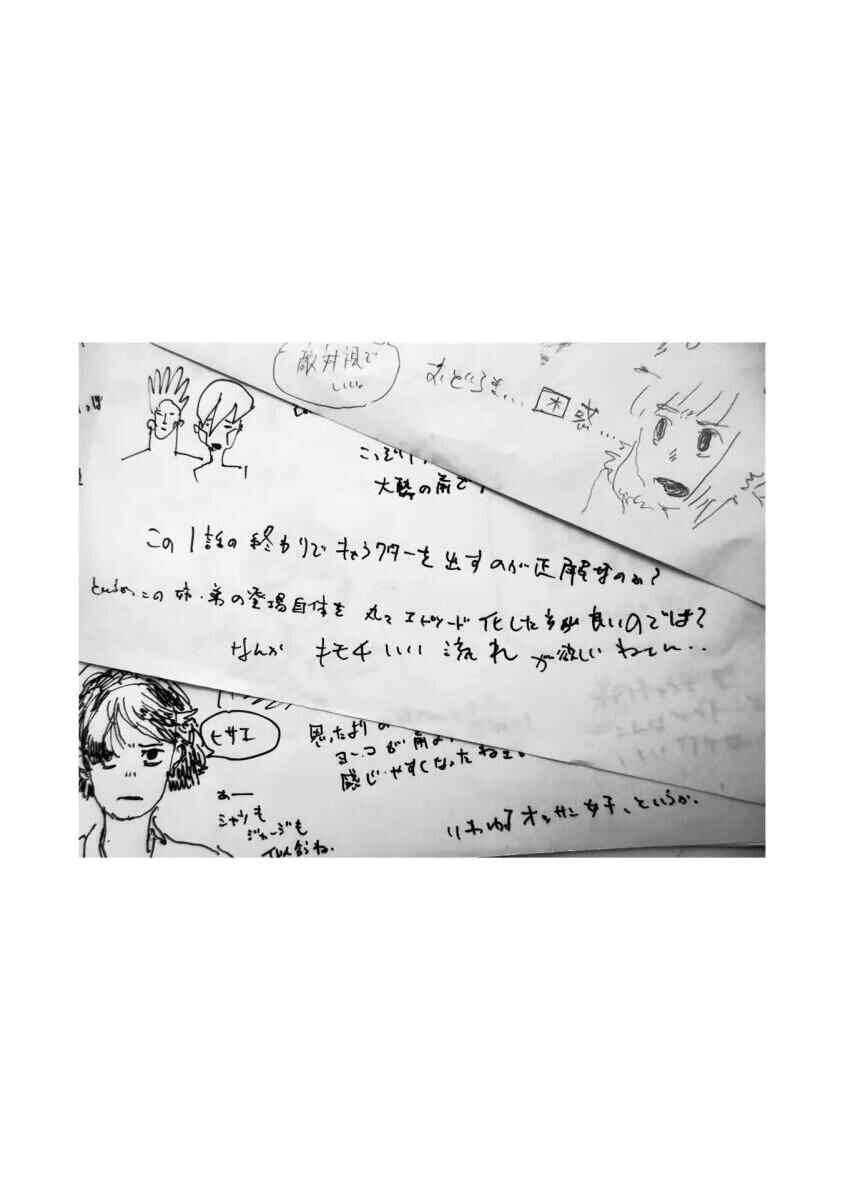 敵対視で
いい
おどろき... 困惑...
大勢の前で
この1話の終わりでキャラクターを出すのが正解なのか?
というかこの姉・弟の登場自体を 丸々エピソード化した方が良いのでは?
なんか キモチいい流れが欲しいねてん..
ヒサエ
思ったより
ヨーコが前
感じやすくなったねぇ。
あー
シャツも
ジャージも
似合うね.
いわゆるオッサン女子、というか.